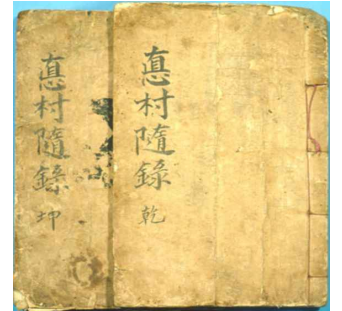 悳村隨錄 乾
悳村隨錄 坤